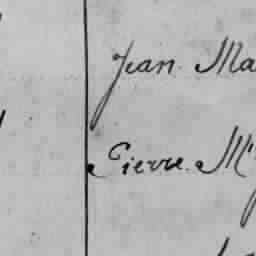 Jean Ma
Pierre M